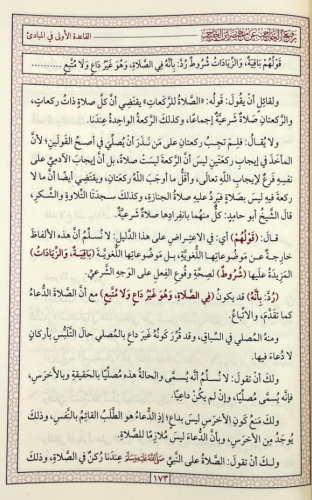 القاعدة الأولى في المبادئ
قَوْلُهُمْ بَاقِيَةٌ، وَالزِّيَادَاتُ شُرُوطٌ رُدَّ: بِأَنَّهُ فِي الصَّلَاةِ، وَهُوَ غَيْرُ دَاعٍ وَلَا مُتَّبِعٍ ..........
ولقائلٍ أنْ يقُولَ: قولُهُ: «الصَّلاةُ للرَّكعاتِ» يقتضِي أنَّ كلَّ صلاةٍ ذاتُ ركعاتٍ،
والرَّكعتانِ صلاةٌ شرعيَّةٌ إجماعًا، وكذلكَ الرَّكعةُ الواحدةُ عِندَنا.
ولا يُقالُ: فلِمَ تجبُ ركعتانِ على مَن نَذَرَ أنْ يُصلِّيَ في أصحِّ القَولَينِ؛ لأنَّ
المأخَذَ في إيجابِ ركعتَينِ ليسَ أنَّ الرَّكعةَ ليسَتْ صلاةً، بل أنَّ إيجابَ الآدميِّ على
نفسِهِ فرعٌ لإيجابِ اللهِ تعالَى، وأقلُّ ما أوجَبَ اللهُ ركعتانِ، ويقتضِي أيضًا أنَّ ما لا
ركعةَ فيهِ ليسَ بصَلاةٍ فيَرِدُ عليهِ صلاةُ الجنازةِ، وكذلكَ سجدَتا التِّلاوةِ والشُّكرِ،
قالَ الشَّيخُ أبو حامِدٍ: كلٌّ منهُما بانفِرادِها صلاةٌ شرعيَّةٌ.
قالَ: (قَوْلُهُمْ) أي: في الاعتِراضِ على هذا الدَّليلِ: لا نُسلِّمُ أنَّ هذهِ الألفاظَ
خارِجةٌ عن موضوعاتِها اللُّغويَّةِ، بل مَوضوعاتُها اللُّغويَّةُ (بَاقِيَةٌ، وَالزِّيَادَاتُ)
المَزيدةُ علَيها (شُرُوطٌ) لصِحَّةِ وقُوعِ الفِعلِ على الوَجهِ الشَّرعيِّ.
(رُدَّ: بِأَنَّهُ) قد يكونُ (فِي الصَّلَاةِ، وَهُوَ غَيْرُ دَاعٍ وَلَا مُتَّبِعٍ) مع أنَّ الصَّلاةَ الدُّعاءُ
كما تقدَّمَ، والاتِّباعُ.
ومنهُ المصلِّي في السِّباقِ، وقد قُرِّرَ كَونُهُ غَيرَ داعٍ بالمُصلِّي حالَ التَّلبُّسِ بأركانٍ
لا دُعاءَ فيها.
ولكَ أنْ تقولَ: لا نُسلِّمُ أنَّهُ يُسمَّى والحالةُ هذهِ مُصلِّيًا بالحَقيقةِ وبالأخرَسِ،
فإنَّهُ يُسمَّى مُصلِّيًا، وإنْ لم يكُنْ داعِيًا.
ولكَ مَنعُ كَونِ الأخرَسِ ليسَ بداعٍ؛ إذِ الدُّعاءُ هو الطَّلَبُ القائِمُ بالنَّفسِ، وذلكَ
يُوجَدُ مِن الأخرَسِ، وبأنَّ الدُّعاءَ ليسَ مُلازِمًا للصَّلاةِ.
ولكَ أنْ تقولَ: الصَّلاةُ على النَّبيِّ ﷺ عِندَنا رُكنٌ في الصَّلاةِ، وذلكَ
١٧٣